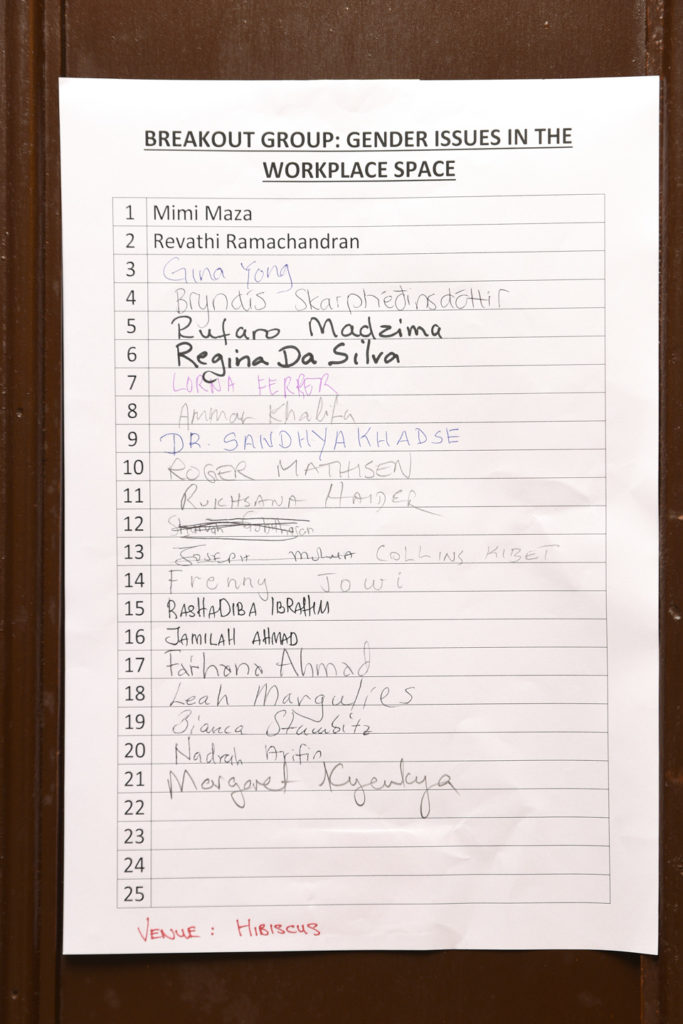 BREAKOUT GROUP: GENDER ISSUES IN THE
WORKPLACE SPACE
1 Mimi Maza
2 Revathi Ramachandran
3 Gina Yong
4 Bryndís Skarphéðinsdóttir
5 Rufaro Madzima
6 Regina Da Silva
7 LORNA FERRER
8 Ammar Khalifa
9 DR. SANDHYA KHADSE
10 ROGER MATHISEN
11 RUKHSANA HAIDER
12
13 JOSEPH COLLINS KIBET
14 Frenny Jowi
15 RASHADIBA IBRAHIM
16 JAMILAH AHMAD
17 Farhana Ahmad
18 Leah Margulies
19 Bianca Stumbitz
20 Nadrah Arifin
21 Margaret Kyenkya
22
23
24
25
VENUE: HIBISCUS